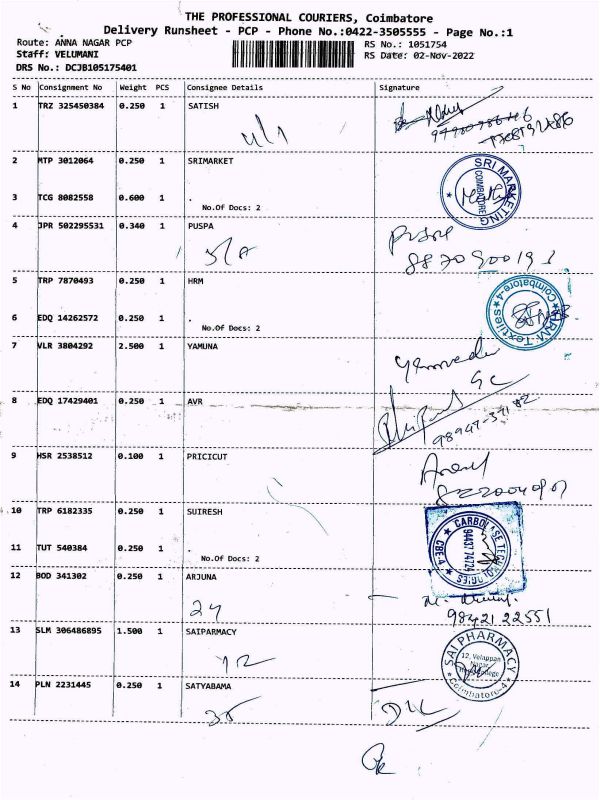 THE PROFESSIONAL COURIERS, Coimbatore
Delivery Runsheet - PCP - Phone No.:0422-3505555 - Page No.:1
Route: ANNA NAGAR PCP
RS No.: 1051754
Staff: VELUMANI
RS Date: 02-Nov-2022
DRS No.: DCJB105175401
S No Consignment No Weight PCS Consignee Details Signature
1 TRZ 325450384 0.250 1 SATISH
2 MTP 3012064 0.250 1 SRIMARKET
SRI MARKETING COIMBATORE
3 TCG 8082558 0.600 1 .
No.Of Docs: 2
4 JPR 502295531 0.340 1 PUSPA
5 TRP 7870493 0.250 1 HRM
HRM Textiles Coimbatore-4
6 EDQ 14262572 0.250 1 .
No.Of Docs: 2
7 VLR 3804292 2.500 1 YAMUNA
8 EDQ 17429401 0.250 1 AVR
9 HSR 2538512 0.100 1 PRICICUT
10 TRP 6182335 0.250 1 SUIRESH
TECHNOLOGIES CBE-4
9443774724
11 TUT 540384 0.250 1 .
No.Of Docs: 2
12 BOD 341302 0.250 1 ARJUNA
24
98421 22551
13 SLM 306486895 1.500 1 SAIPARMACY
12
SAI PHARMACY
12, Velappan
Nagar
Coimbatore-4
14 PLN 2231445 0.250 1 SATYABAMA